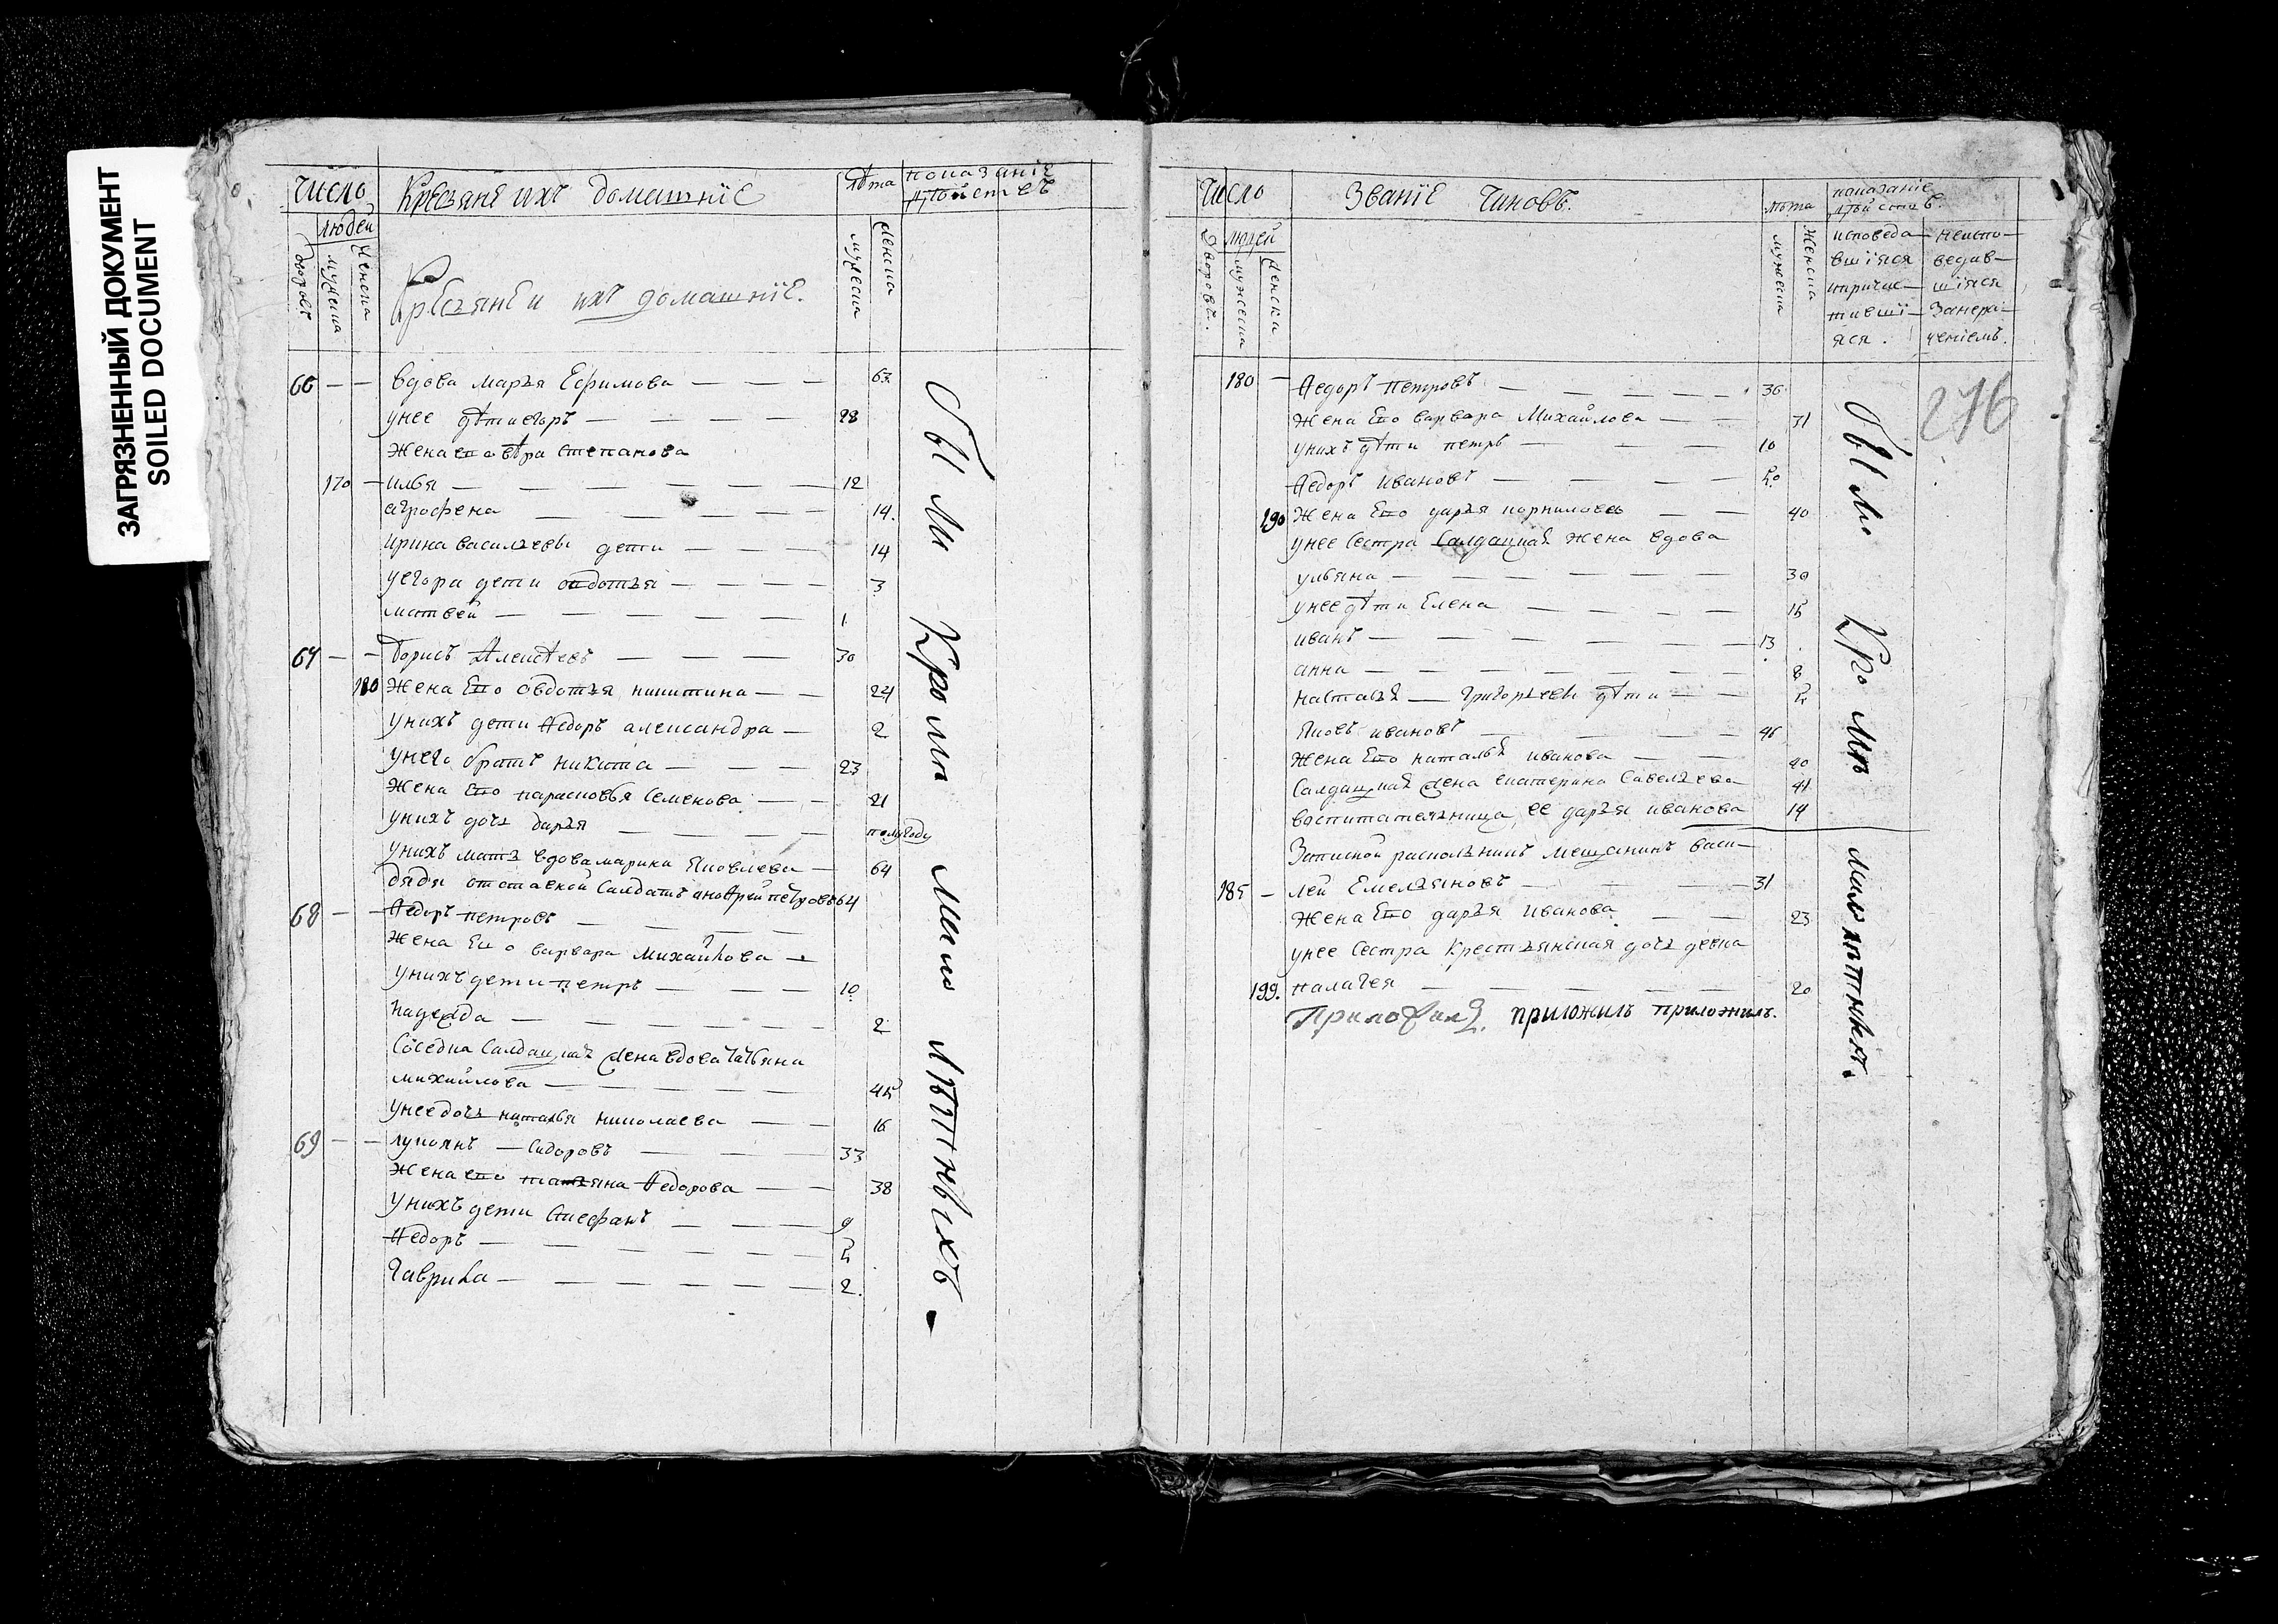 ЗАГРЯЗНЕННЫЙ ДОКУМЕНТ
SOILED DOCUMENT
Число
людей
дворовъ
мужеска
женска
Крѣзяне ихъ домашніе
Крѣзяне и ихъ домашніе.
лѣта
мужеска
женска
показаніе
66 — — вдова марья Ефимова — — — 63
унее дѣти егорь — — — 28
Жена его вѣра степанова
170 — илья — — — 12
агрофена — — — 14.
ирина василѣевы дети — — — 14
уегора дети овдотья — — — 3
матвей — — — 1
67 — — борисъ Алексѣевъ — — — 30
180 Жена Его овдотья никитина — — 24
унихъ дети Ѳедоръ александра — 2
унего братъ никита — — — 23
Жена Его парасковья Семенова — — 21
унихъ дочь дарья — — — полугоду
унихъ мать вдова марина Яковлева — 64
дядя отставной Салдатъ андрей петровъ 64
68 — — Ѳедоръ петровъ — — —
Жена Его варвара Михайлова —
унихъ дети петръ — — — 10
надежда — — — 2
Соседка Салдацкая жена вдова татьяна
михайлова — — — 45
унее дочь наталья николаева — — 16
69 — — лукоянъ — Сидоровъ — — — 33
Жена его татьяна Ѳедорова — — 38
унихъ дети Стефанъ — — — 9
Ѳедоръ — — — 5
Гаврила — — — 2.
Обыли Кроми Мало лѣтныхъ.
Число
людей
Дворовъ.
мужеска
женска
Званіе Чиновъ.
лѣта
мужеска
женска
показаніе
исповеда—
вшіяся
ипричас—
тивші—
яся.
неиспо—
ведав—
шіяся
276
180 — Ѳедоръ петровъ — — — 36
Жена Его варвара Михайлова — 31
унихъ дѣти петръ — — — 10
Ѳедоръ ивановъ — — — 50
190 Жена Его дарья корнилова — — 40
унее Сестра Салдацкая жена вдова
ульяна — — — 30
унее дѣти Елена — — — 15
иванъ — — — 13
анна — — — 8
настасья — григорьевы дѣти — — 5
Яковъ ивановъ — — — 46
Жена Его наталья иванова — — 40
Салдацкая жена екатерина Савельева 41
воспитательница ее дарья иванова 14
Записной раскольникъ мещанинъ васи—
185 — лей Емельяновъ — — — 31
Жена Его дарья Иванова — — 23
унее Сестра Крестьянская дочь девка
199. палагея — — — 20
приложилъ приложилъ.
Обыли Кроми малолѣтныхъ.